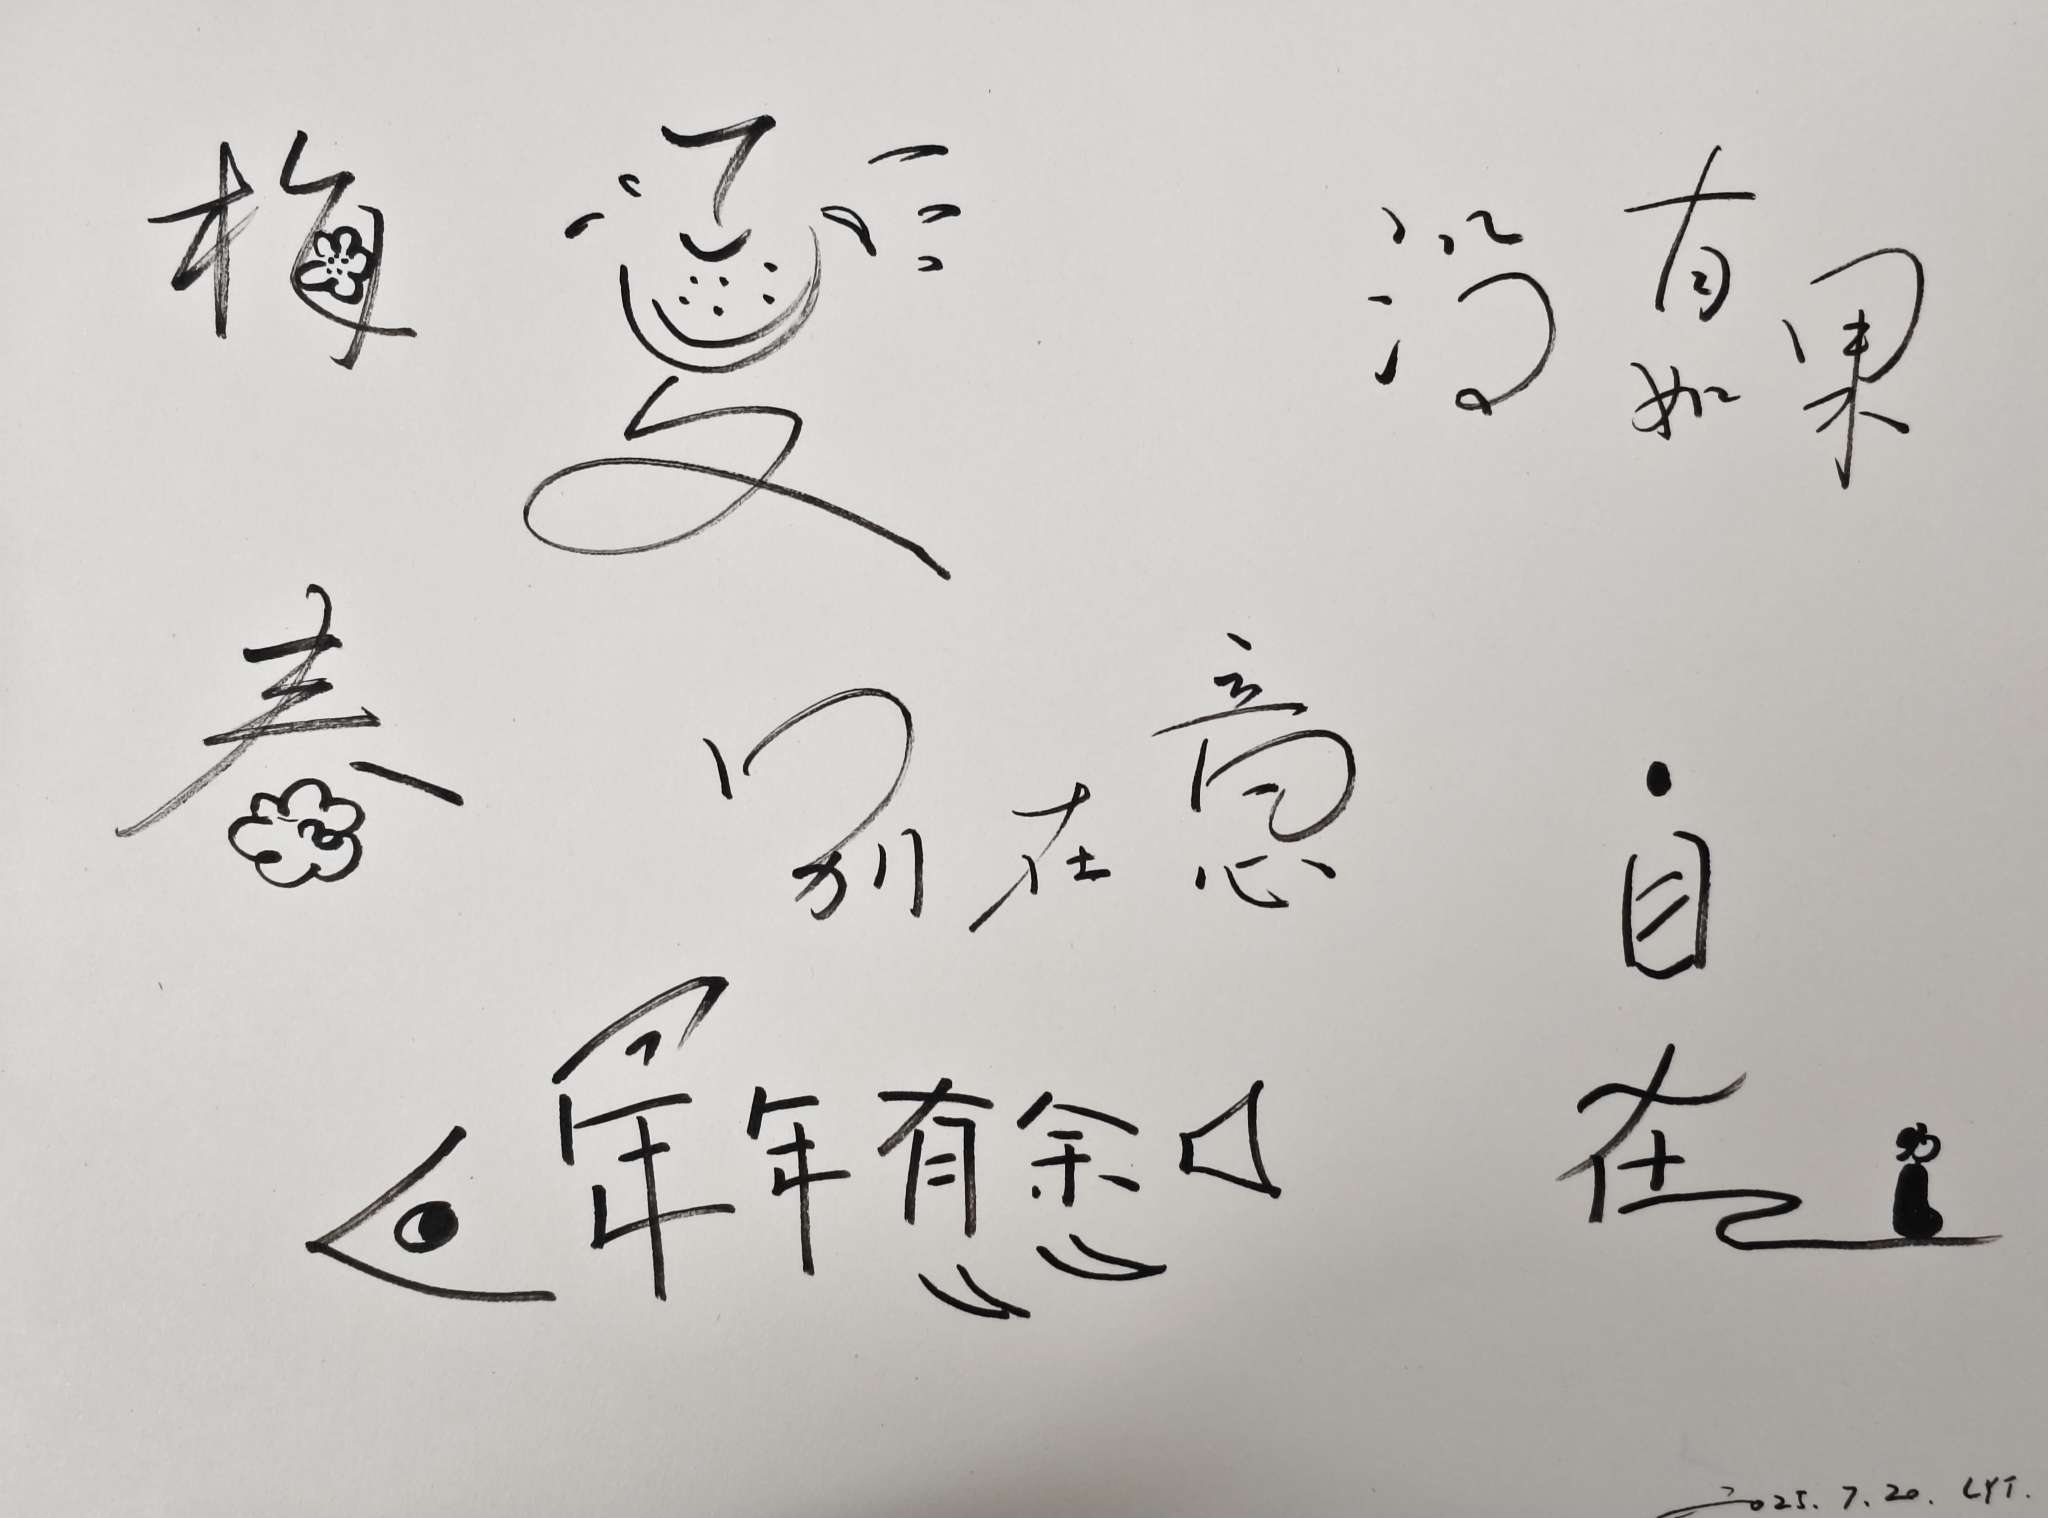 梅
夏
没有如果
春
别在意
自在
年年有余
2025.7.20. LYT.